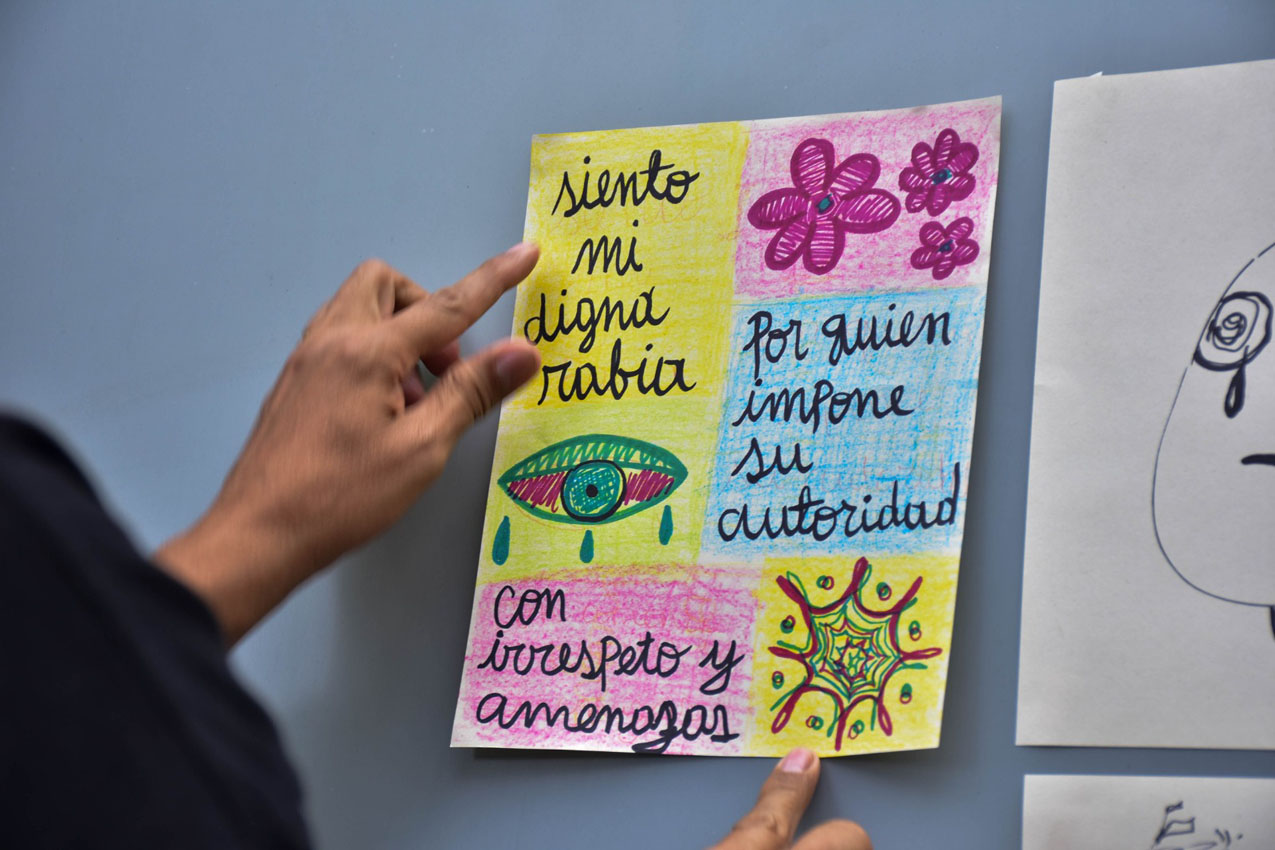 siento
mi
digna
rabia
Por quien
impone
su
autoridad
con
irrespeto y
amenazas